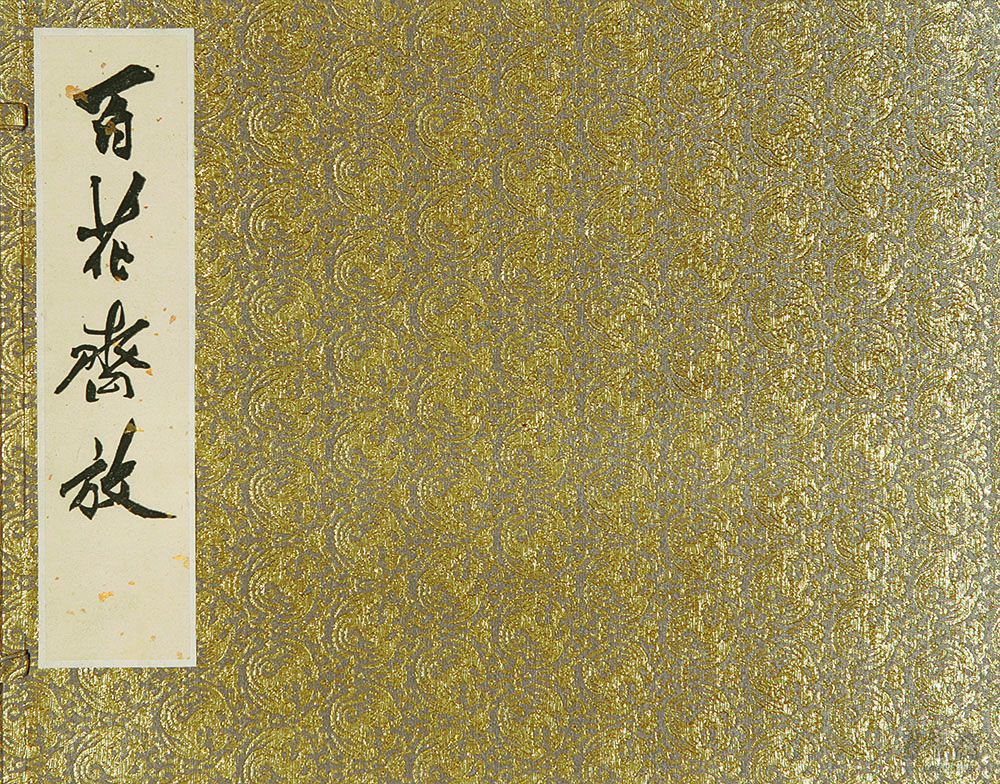 百花齊放